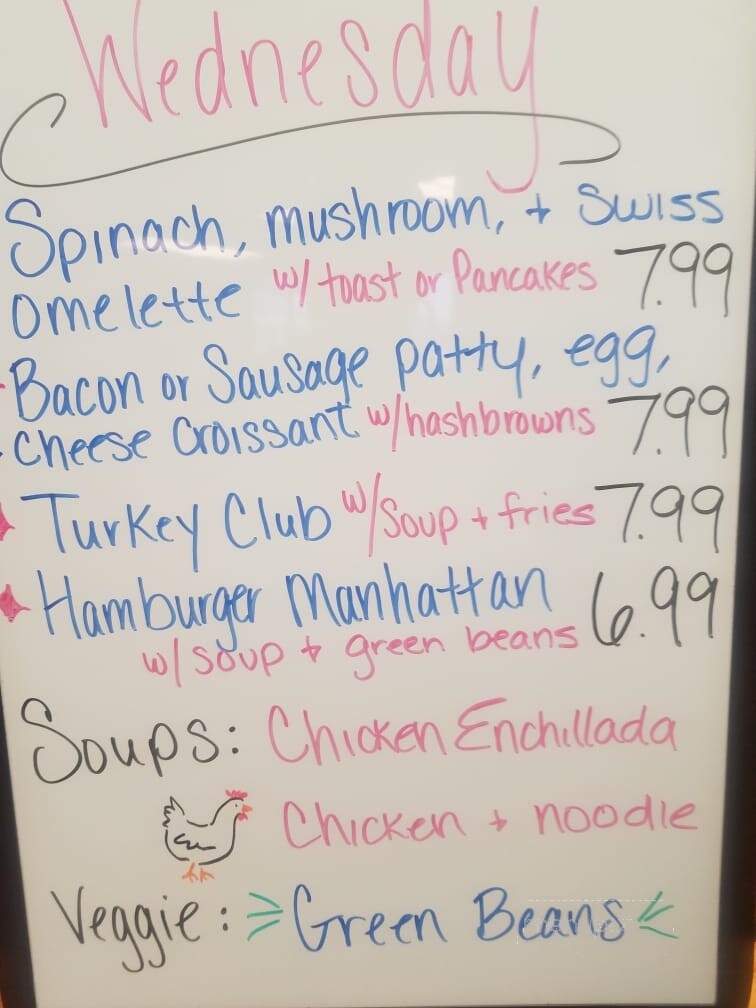 Wednesday
Spinach, mushroom, + Swiss
omelette w/ toast or Pancakes 7.99
Bacon or Sausage patty, egg,
Cheese Croissant w/hashbrowns 7.99
Turkey Club w/Soup + fries 7.99
Hamburger Manhattan 6.99
w/ soup + green beans
Soups: Chicken Enchillada
Chicken + noodle
Veggie: Green Beans